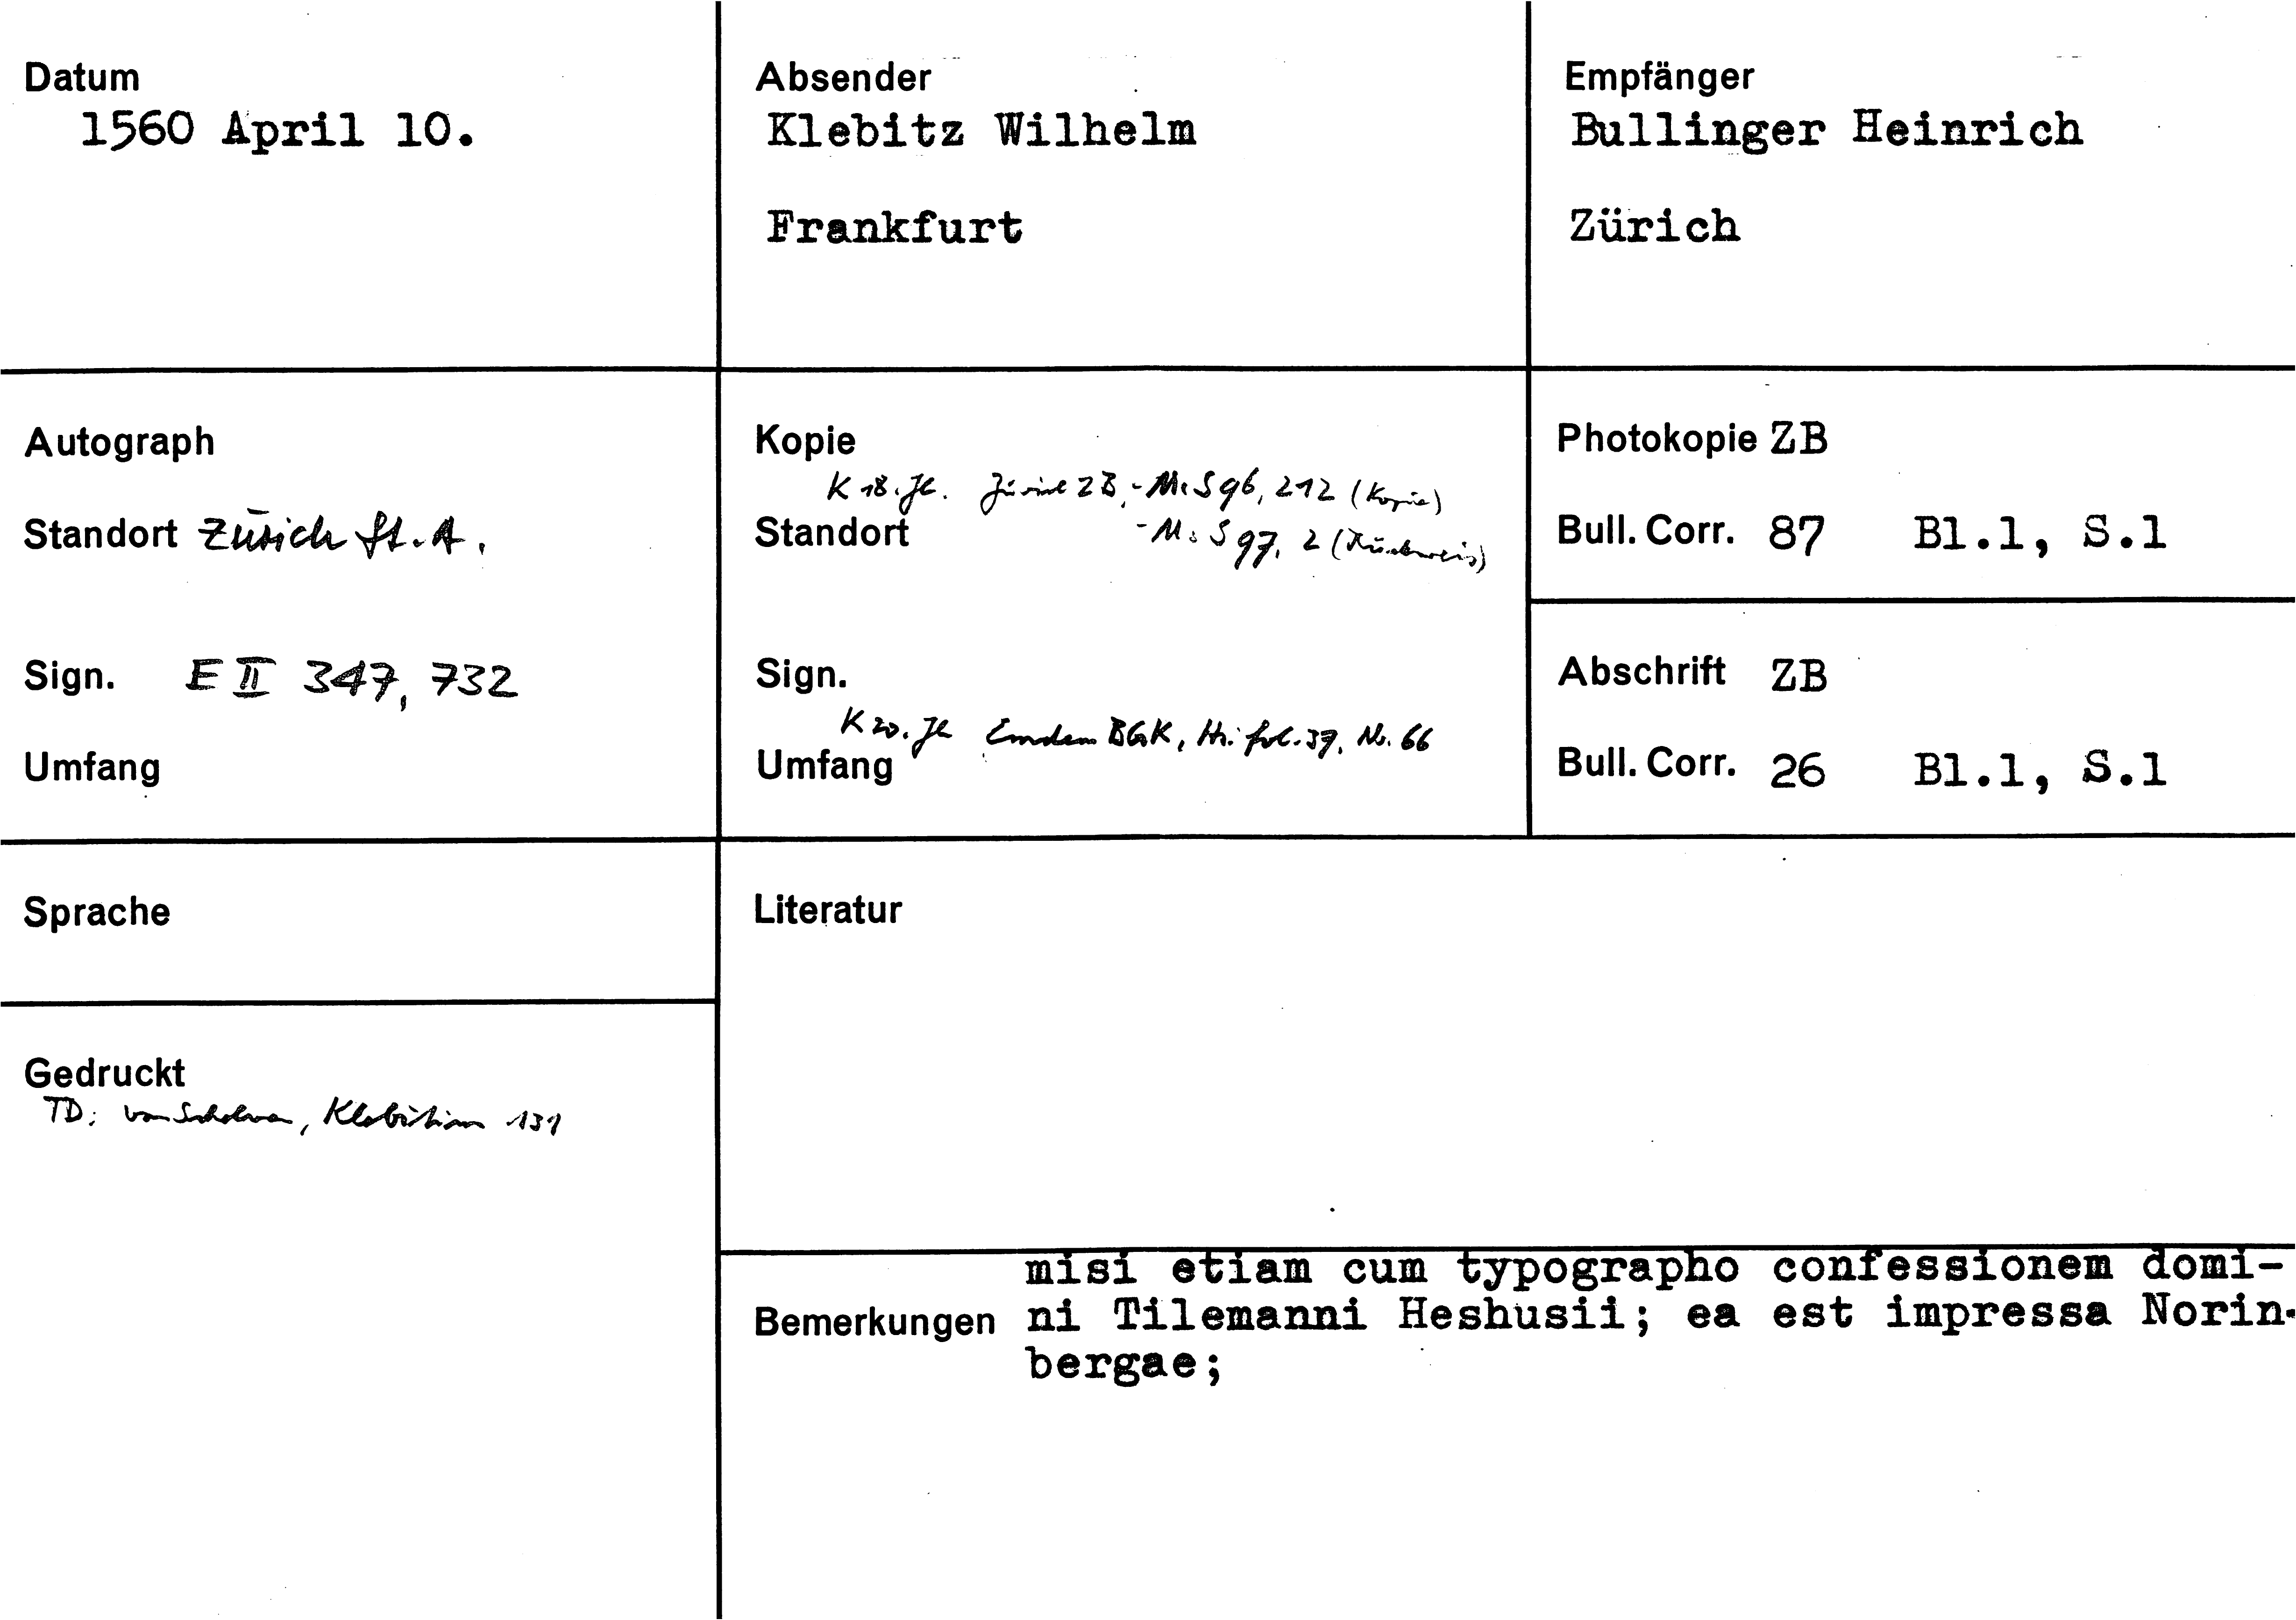 Datum
1560 April 10.
Absender
Klebitz Wilhelm
Frankfurt
Empfänger
Bullinger Heinrich
Zürich
Autograph
Standort Zürich St.A.
Sign. E II 347, 732
Umfang
Kopie
K 18. Jh. Zürich ZB, - Ms S 96, 212 (Kopie)
Standort - Ms S 97, 2 (Rückweis)
Sign.
K 20. Jh Emden BGK, Hs. fol. 37, Nr. 66
Umfang
Photokopie ZB
Bull. Corr. 87 Bl.1, S.1
Abschrift ZB
Bull. Corr. 26 Bl.1, S.1
Sprache
Gedruckt
TD: von 131
Literatur
Bemerkungen
misi etiam cum typographo confessionem domi-
ni Tilemanni Heshusii; ea est impressa Norin-
bergae;